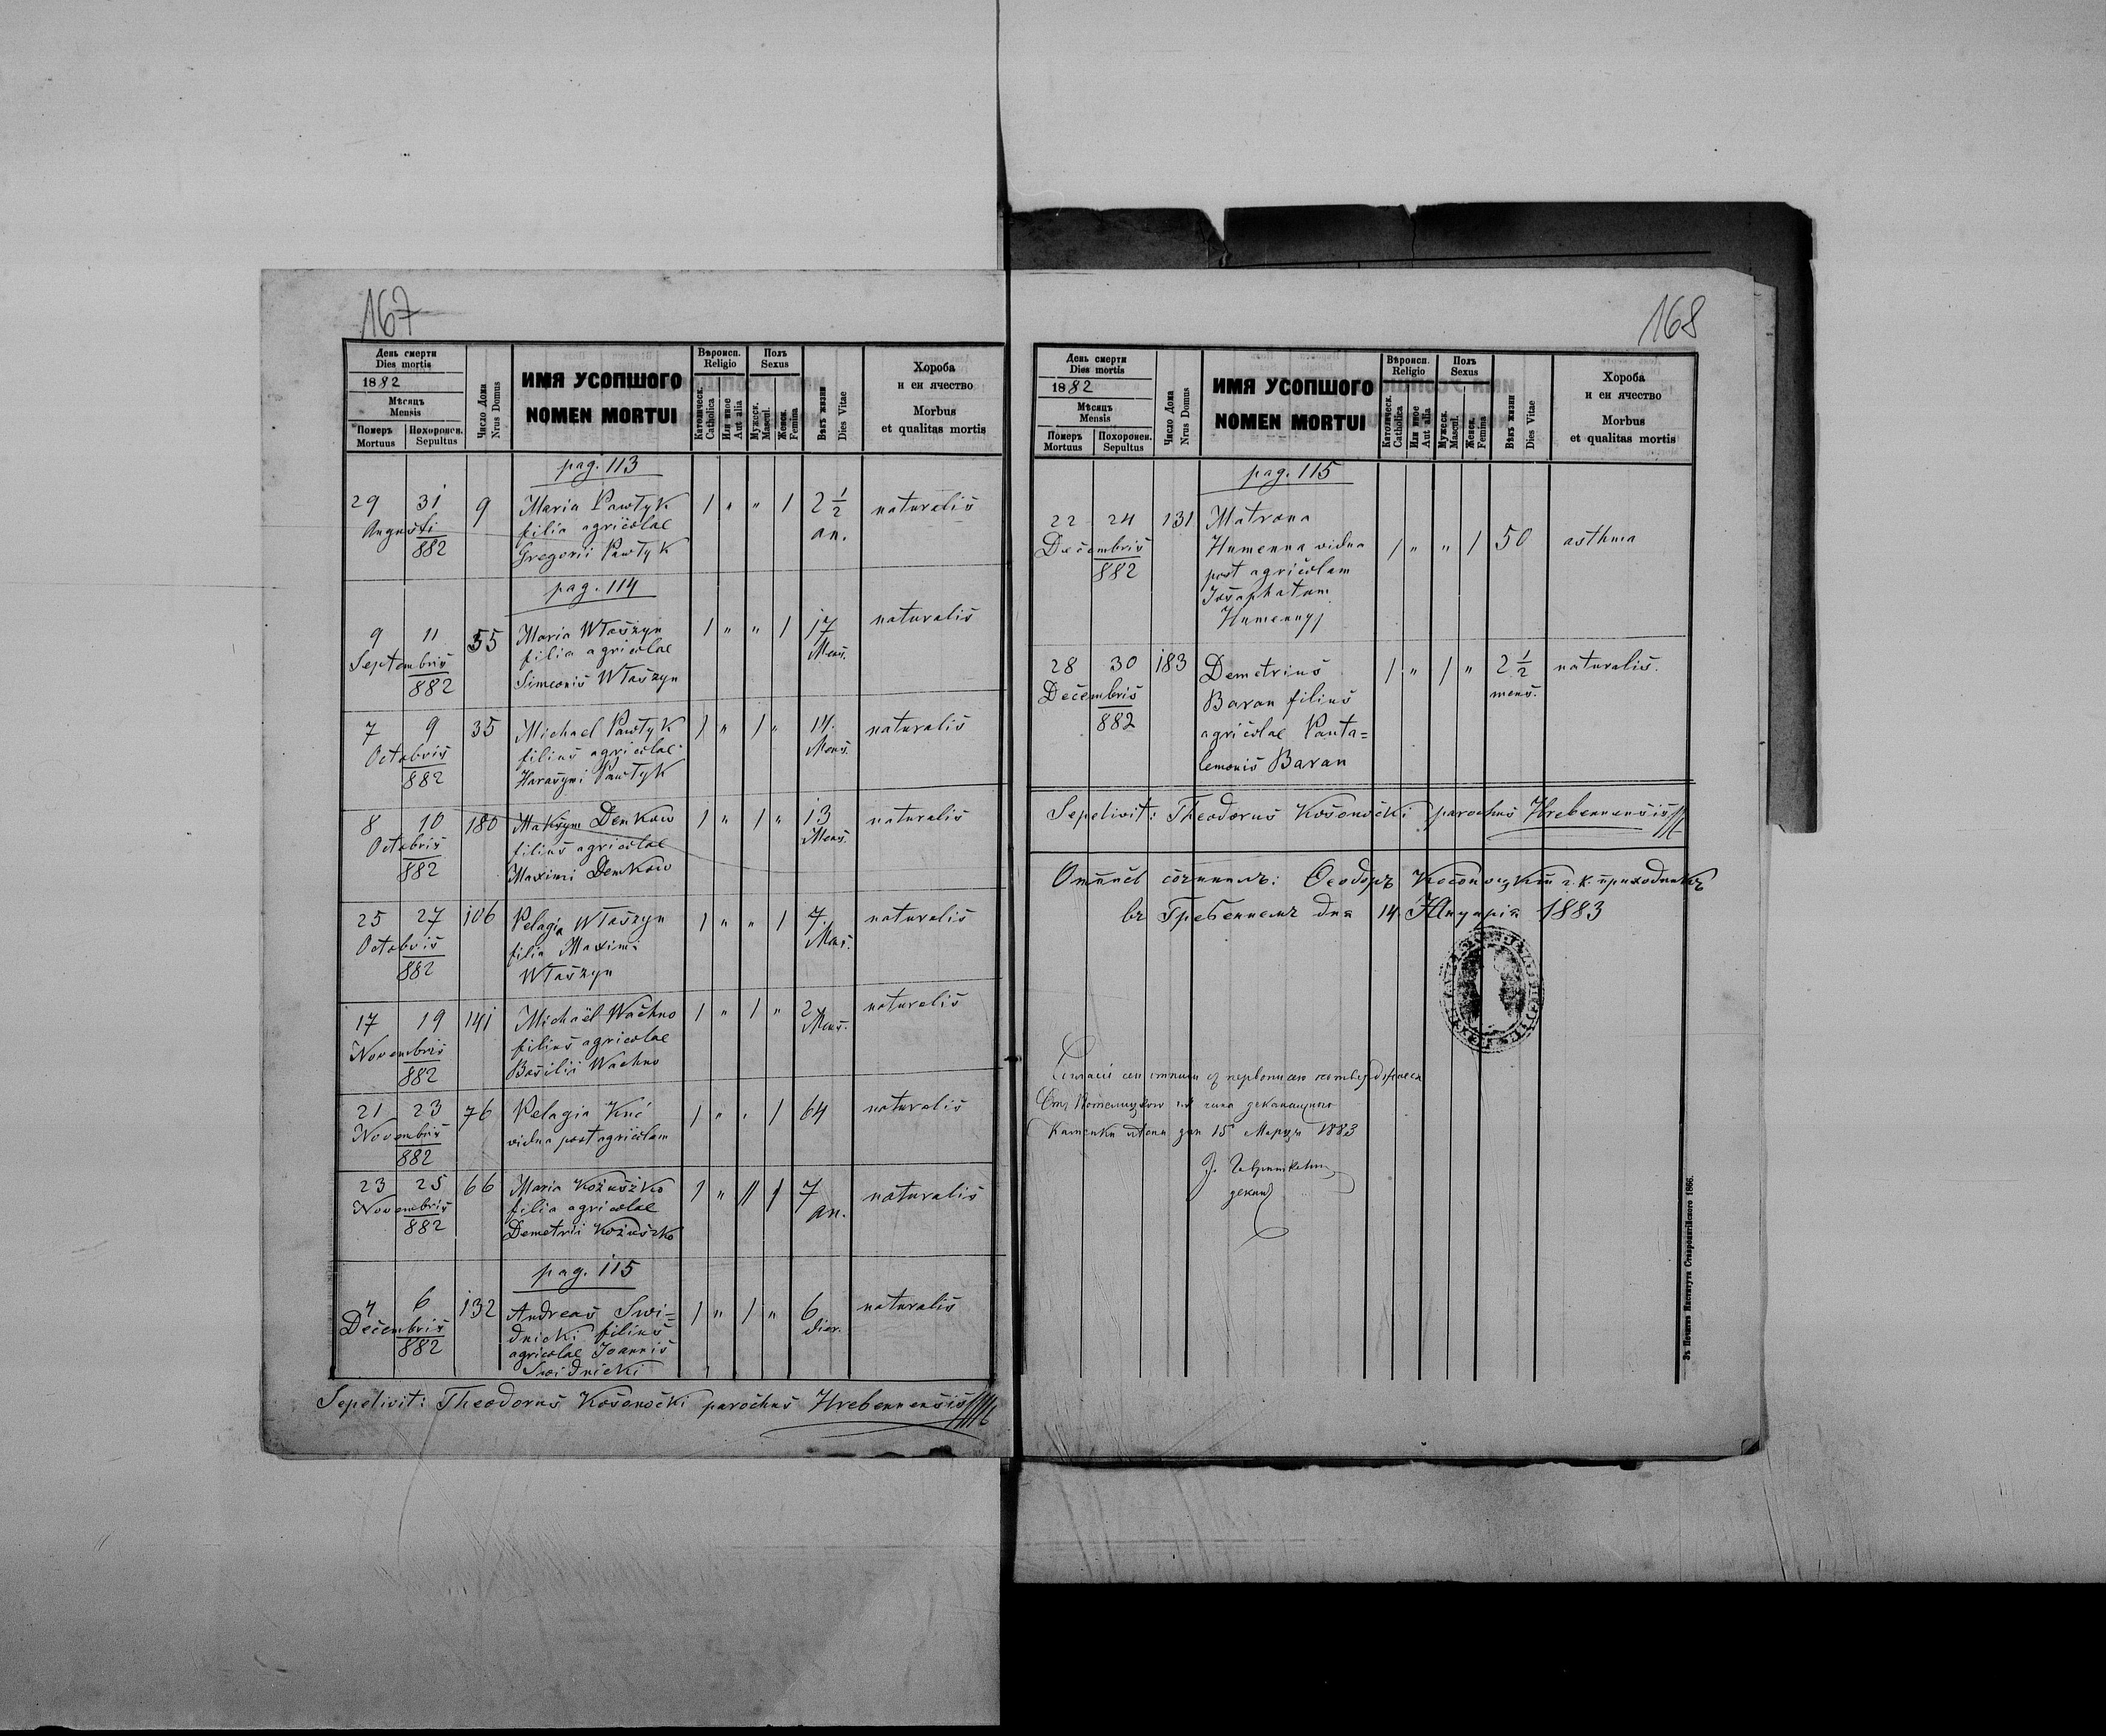 167
День смерти
Dies mortis
1882
Мѣсяцъ
Mensis
Померъ
Mortuus
Похоронен.
Sepultus
Число Дома
Nrus Domus
ИМЯ УСОПШОГО
NOMEN MORTUI
Вѣроисп.
Religio
Католическ.
Catholica
Или иное
Aut alia
Полъ
Sexus
Мужеск.
Mascul.
Женск.
Femina
Вѣкъ жизни
Dies Vitae
Хороба
и еи ячество
Morbus
et qualitas mortis
pag. 113
29 31 9 Maria Pawłyk 1 " " 1 2 1/2 naturalis
Augusti filia agricolae an.
882 Gregorii Pawłyk
pag. 114
9 11 55 Maria Właszyn 1 " " 1 17 naturalis
Septembris filia agricolae Mens.
882 Simeonis Właszyn
7 9 35 Michael Pawłyk 1 " 1 " 14. naturalis
Octobris filius agricolae Mens.
882 Harasymi Pawłyk
8 10 180 Maksym Denkow 1 " 1 " 13 naturalis
Octobris filius agricolae Mens.
882 Maximi Denkow
25 27 106 Pelagia Właszyn 1 " " 1 7. naturalis
Octobris filia Maximi Mens.
882 Właszyn
17 19 141 Michaël Wachno 1 " 1 " 2 naturalis
Novembris filius agricolae Mens.
882 Basilii Wachno
21 23 76 Pelagia Kuć 1 " " 1 64 naturalis
Novembris vidua post agricolam
882
23 25 66 Maria Kożuszko 1 " " 1 7 naturalis
Novembris filia agricolae an.
882 Demetrii Kożuszko
pag. 115
4 6 132 Andreas Swi= 1 " 1 " 6 naturalis
Decembris dnicki filius dier.
882 agricolae Joannis
Swidnicki
Sepelivit: Theodorus Kosonocki parochus Hrebennensis
168
День смерти
Dies mortis
1882
Мѣсяцъ
Mensis
Померъ
Mortuus
Похоронен.
Sepultus
Число Дома
Nrus Domus
ИМЯ УСОПШОГО
NOMEN MORTUI
Вѣроисп.
Religio
Католическ.
Catholica
Или иное
Aut alia
Полъ
Sexus
Мужеск.
Mascul.
Женск.
Femina
Вѣкъ жизни
Dies Vitae
Хороба
и еи ячество
Morbus
et qualitas mortis
pag. 115
22 24 131 Matrona
Decembris Humenna vidua 1 " " 1 50 asthma
882 post agricolam
Josaphatum
Humennyj
28 30 183 Demetrius 1 " 1 " 2 1/2 naturalis.
Decembris Baran filius mens.
882 agricolae Panta=
lemonis Baran
Sepelivit: Theodorus Kosonocki parochus Hrebennensis
Ѳеодоръ г. к. приходникъ
въ Гребенномъ дня 14 Януарія 1883
дня 15 Марта 1883
Зъ Печатнѣ Института Ставропигійского 1866.